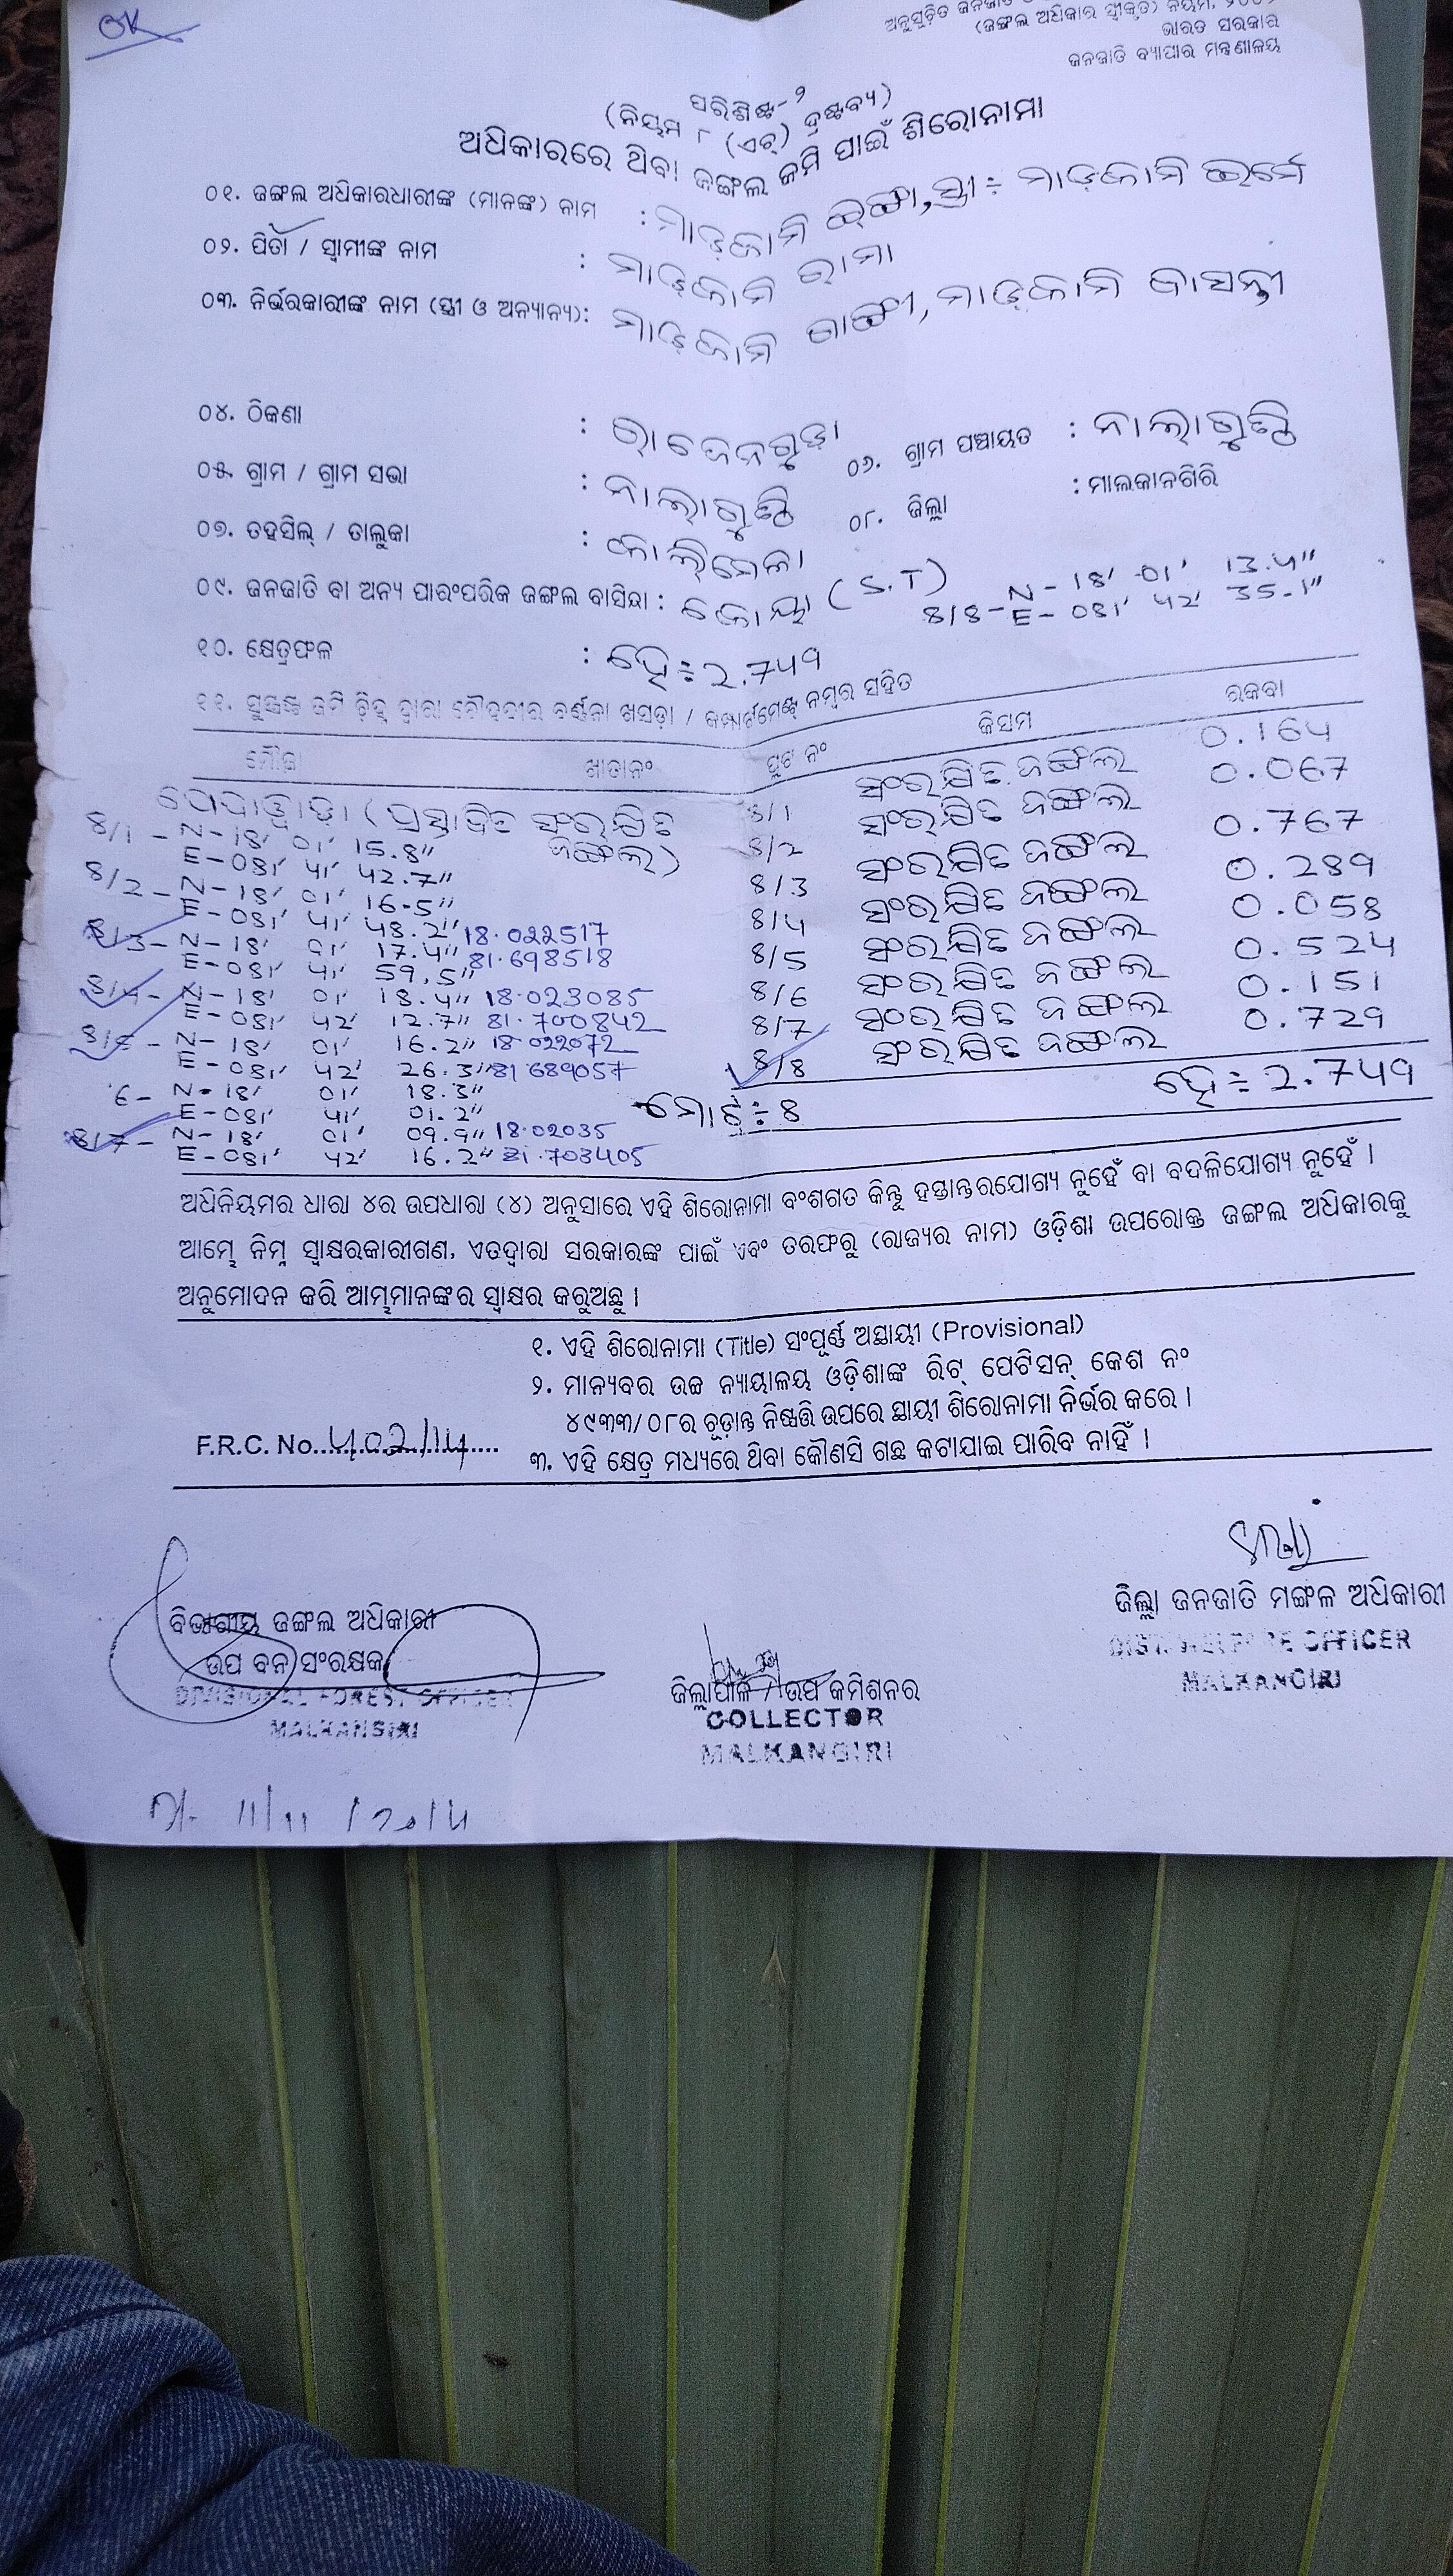 OK
ଅନୁସୂଚିତ ଜନଜାତି
(ଜଙ୍ଗଲ ଅଧିକାର ସ୍ୱୀକୃତି) ନିୟମ,
ଭାରତ ସରକାର
ଜନଜାତି ବ୍ୟାପାର ମନ୍ତ୍ରଣାଳୟ
ପରିଶିଷ୍ଟ-୨
(ନିୟମ ୮ (ଏଚ୍) ଦ୍ରଷ୍ଟବ୍ୟ)
ଅଧିକାରରେ ଥିବା ଜଙ୍ଗଲ ଜମି ପାଇଁ ଶିରୋନାମା
୦୧. ଜଙ୍ଗଲ ଅଧିକାରଧାରୀଙ୍କ (ମାନଙ୍କ) ନାମ : ମାଡ଼କାମି ସ୍ତ୍ରୀ ÷ ମାଡ଼କାମି
୦୨. ପିତା / ସ୍ୱାମୀଙ୍କ ନାମ : ମାଡ଼କାମି ରାମା
୦୩. ନିର୍ଭରକାରୀଙ୍କ ନାମ (ସ୍ତ୍ରୀ ଓ ଅନ୍ୟାନ୍ୟ): ମାଡ଼କାମି ଗାଙ୍ଗୀ, ମାଡ଼କାମି ବାସନ୍ତୀ
୦୪. ଠିକଣା : ରାଜେନଗୁଡ଼ା
୦୬. ଗ୍ରାମ ପଞ୍ଚାୟତ : ନାଲାଗୁଣ୍ଠି
୦୫. ଗ୍ରାମ / ଗ୍ରାମ ସଭା : ନାଲାଗୁଣ୍ଠି
୦୮. ଜିଲ୍ଲା : ମାଲକାନଗିରି
୦୭. ତହସିଲ୍ / ତାଲୁକା : କାଲିମେଳା
୦୯. ଜନଜାତି ବା ଅନ୍ୟ ପାରଂପରିକ ଜଙ୍ଗଲ ବାସିନ୍ଦା : କୋୟା (S.T)
8/8 - N - 18' 01' 13.4"
E - 081' 42' 35.1"
୧୦. କ୍ଷେତ୍ରଫଳ : ହେ ÷ 2.749
୧୧. ସୁସ୍ପଷ୍ଟ ଜମି ଚିହ୍ନ ଦ୍ୱାରା ଚୌହଦୀର ବର୍ଣ୍ଣନା ଖସଡ଼ା / କମ୍ପାର୍ଟମେଣ୍ଟ ନମ୍ବର ସହିତ
ମୌଜା ଖାତାନଂ ପ୍ଲଟ ନଂ କିସମ ରକବା
(ପ୍ରସ୍ତାବିତ ସଂରକ୍ଷିତ ଜଙ୍ଗଲ)
8/1 ସଂରକ୍ଷିତ ଜଙ୍ଗଲ 0.164
8/2 ସଂରକ୍ଷିତ ଜଙ୍ଗଲ 0.067
8/3 ସଂରକ୍ଷିତ ଜଙ୍ଗଲ 0.767
8/4 ସଂରକ୍ଷିତ ଜଙ୍ଗଲ 0.289
8/5 ସଂରକ୍ଷିତ ଜଙ୍ଗଲ 0.058
8/6 ସଂରକ୍ଷିତ ଜଙ୍ଗଲ 0.524
8/7 ସଂରକ୍ଷିତ ଜଙ୍ଗଲ 0.151
8/8 ସଂରକ୍ଷିତ ଜଙ୍ଗଲ 0.729
8/1 - N - 18' 01' 15.8"
E - 081' 41' 42.7"
8/2 - N - 18' 01' 16.5"
E - 081' 41' 48.2" 18.022517
8/3 - N - 18' 01' 17.4" 81.698518
E - 081' 41' 59.5"
8/4 - N - 18' 01' 18.4" 18.023085
E - 081' 42' 12.7" 81.700842
8/5 - N - 18' 01' 16.2" 18.022072
E - 081' 42' 26.3" 81.689057
6 - N - 18' 01' 18.3"
E - 081' 41' 01.2"
8/7 - N - 18' 01' 09.9" 18.02035
E - 081' 42' 16.2" 81.703405
ମୋଟ ÷ 8 ହେ ÷ 2.749
ଅଧିନିୟମର ଧାରା ୪ର ଉପଧାରା (୪) ଅନୁସାରେ ଏହି ଶିରୋନାମା ବଂଶଗତ କିନ୍ତୁ ହସ୍ତାନ୍ତରଯୋଗ୍ୟ ନୁହେଁ ବା ବଦଳିଯୋଗ୍ୟ ନୁହେଁ ।
ଆମ୍ଭେ ନିମ୍ନ ସ୍ୱାକ୍ଷରକାରୀଗଣ, ଏତଦ୍ୱାରା ସରକାରଙ୍କ ପାଇଁ ଏବଂ ତରଫରୁ (ରାଜ୍ୟର ନାମ) ଓଡ଼ିଶା ଉପରୋକ୍ତ ଜଙ୍ଗଲ ଅଧିକାରକୁ
ଅନୁମୋଦନ କରି ଆମ୍ଭମାନଙ୍କର ସ୍ୱାକ୍ଷର କରୁଅଛୁ ।
୧. ଏହି ଶିରୋନାମା (Title) ସଂପୂର୍ଣ୍ଣ ଅସ୍ଥାୟୀ (Provisional)
୨. ମାନ୍ୟବର ଉଚ୍ଚ ନ୍ୟାୟାଳୟ ଓଡ଼ିଶାଙ୍କ ରିଟ୍ ପେଟିସନ୍ କେଶ ନଂ
୪୯୩୩/୦୮ର ଚୂଡ଼ାନ୍ତ ନିଷ୍ପତ୍ତି ଉପରେ ସ୍ଥାୟୀ ଶିରୋନାମା ନିର୍ଭର କରେ ।
F.R.C. No. 402/14
୩. ଏହି କ୍ଷେତ୍ର ମଧ୍ୟରେ ଥିବା କୌଣସି ଗଛ କଟାଯାଇ ପାରିବ ନାହିଁ ।
ବିଭାଗୀୟ ଜଙ୍ଗଲ ଅଧିକାରୀ
ଉପ ବନ ସଂରକ୍ଷକ
DIVISIONAL FOREST OFFICER
MALKANGIRI
ଜିଲ୍ଲାପାଳ / ଉପ କମିଶନର
COLLECTOR
MALKANGIRI
ଜିଲ୍ଲା ଜନଜାତି ମଙ୍ଗଳ ଅଧିକାରୀ
DIST. WELFARE OFFICER
MALKANGIRI
Dt- 11/11/2014